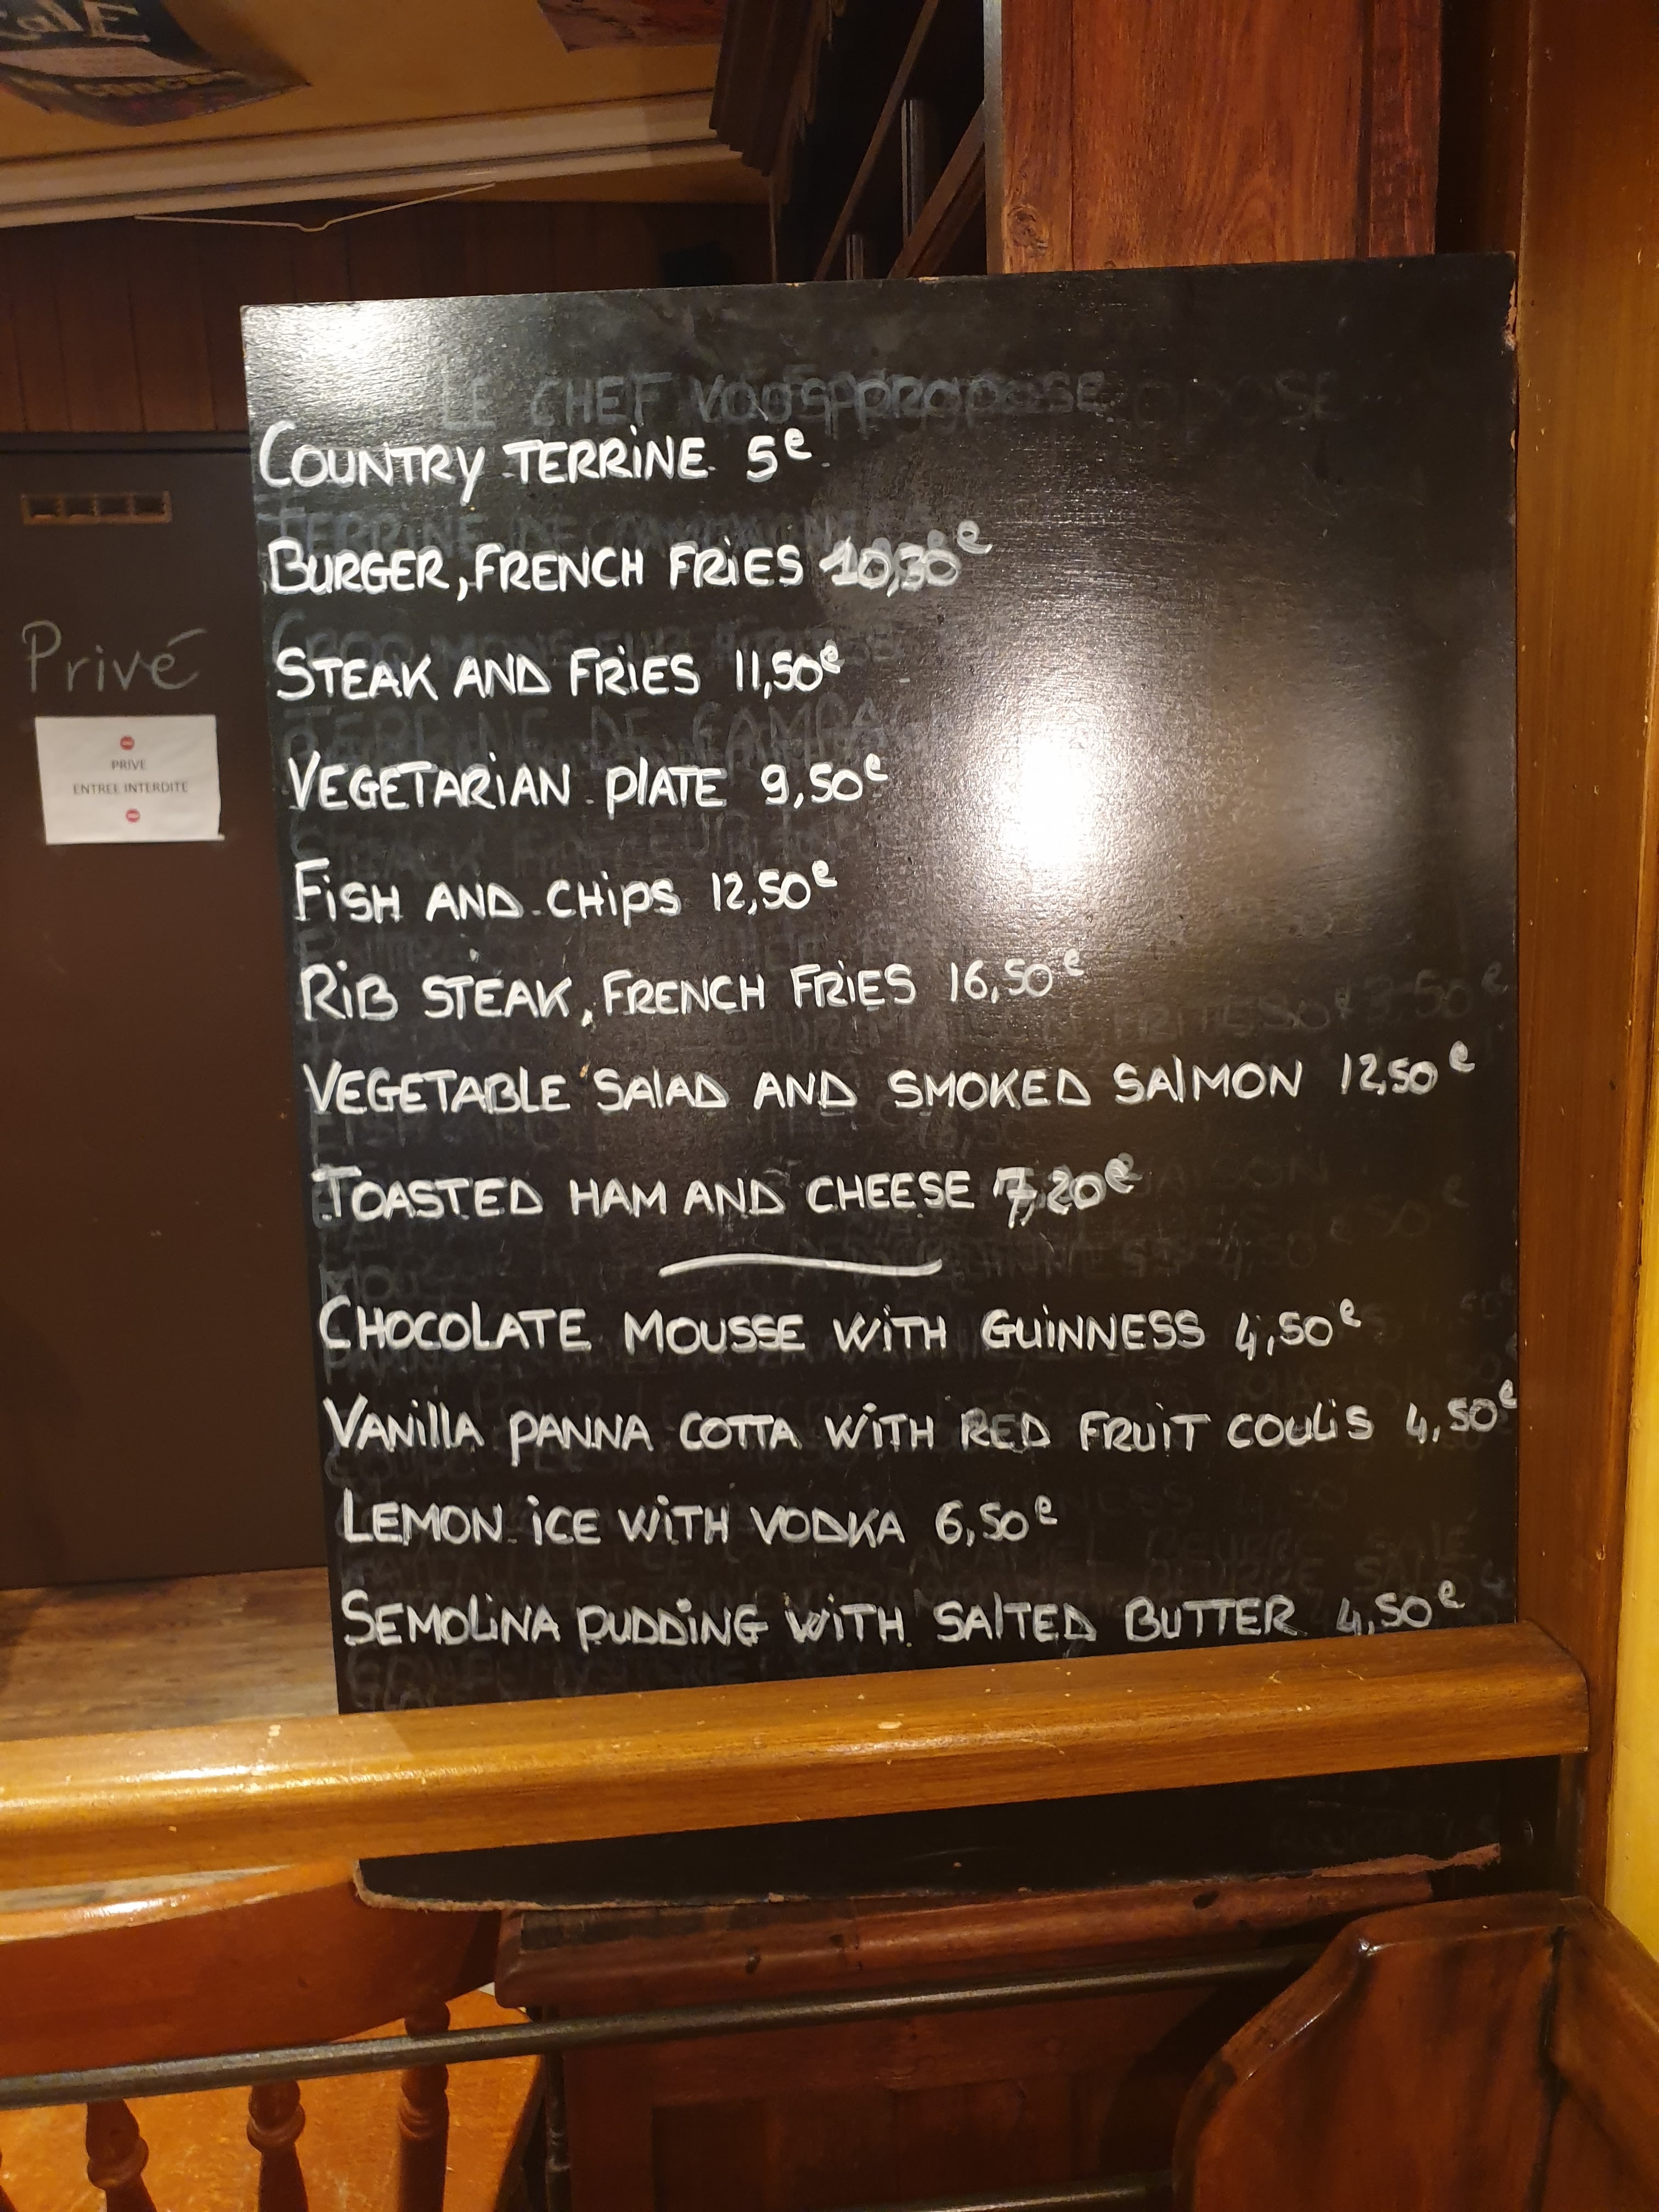 LE CHEF VOUS PROPOSE
COUNTRY TERRINE 5e
BURGER, FRENCH FRIES 10,30e
STEAK AND FRIES 11,50e
VEGETARIAN PLATE 9,50e
FISH AND CHIPS 12,50e
RIB STEAK, FRENCH FRIES 16,50e
VEGETABLE SALAD AND SMOKED SALMON 12,50e
TOASTED HAM AND CHEESE 7,20e
CHOCOLATE MOUSSE WITH GUINNESS 4,50e
VANILLA PANNA COTTA WITH RED FRUIT COULIS 4,50e
LEMON ICE WITH VODKA 6,50e
SEMOLINA PUDDING WITH SALTED BUTTER 4,50e
Privé
PRIVE
ENTREE INTERDITE